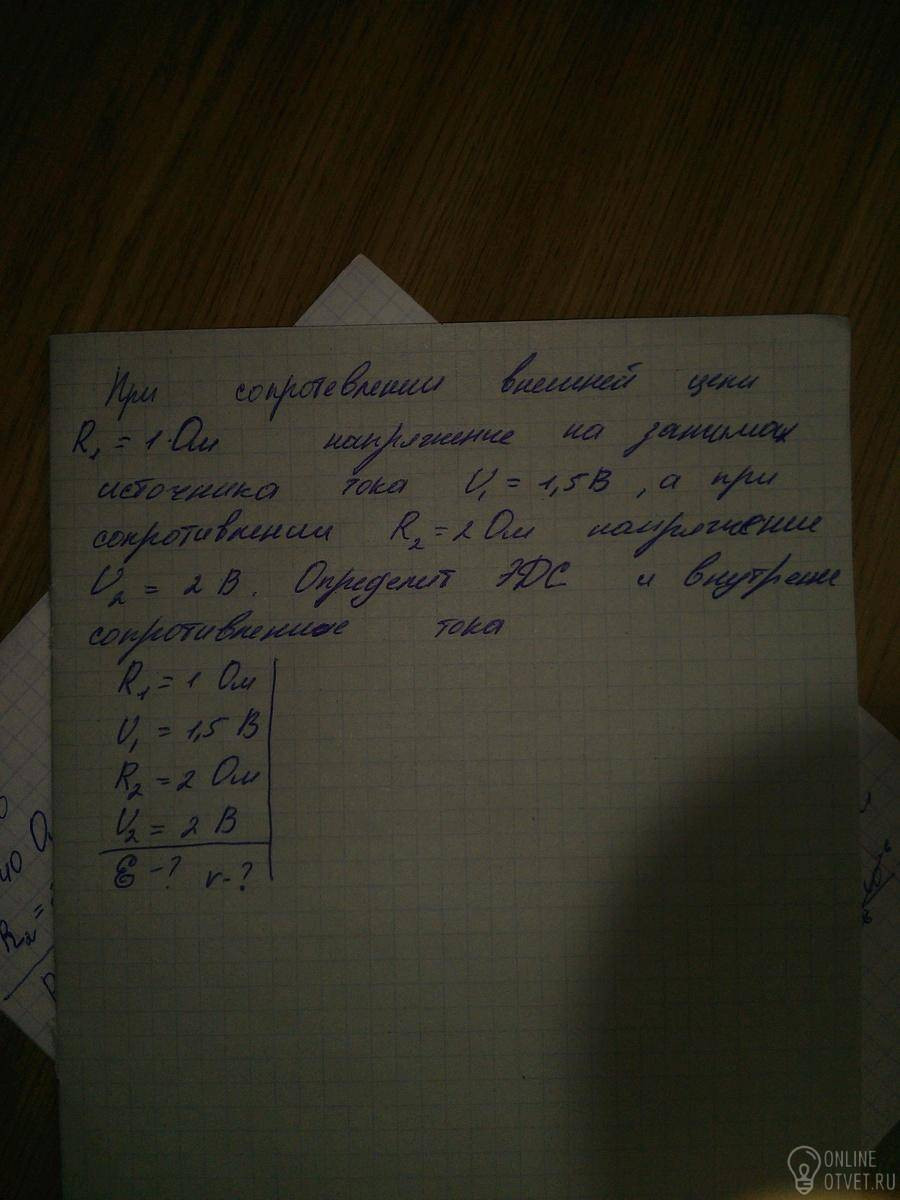 При сопротевлении внешней цепи
R₁ = 1 Ом напряжение на зажимах
источника тока U₁ = 1,5 В, а при
сопротивлении R₂ = 2 Ом напряжение
U₂ = 2 В. Определит ЭДС и внутрене
сопротивление тока
R₁ = 1 Ом
U₁ = 1,5 В
R₂ = 2 Ом
U₂ = 2 В
ℰ -? r-?
R₂ =
ONLINE
OTVET.RU